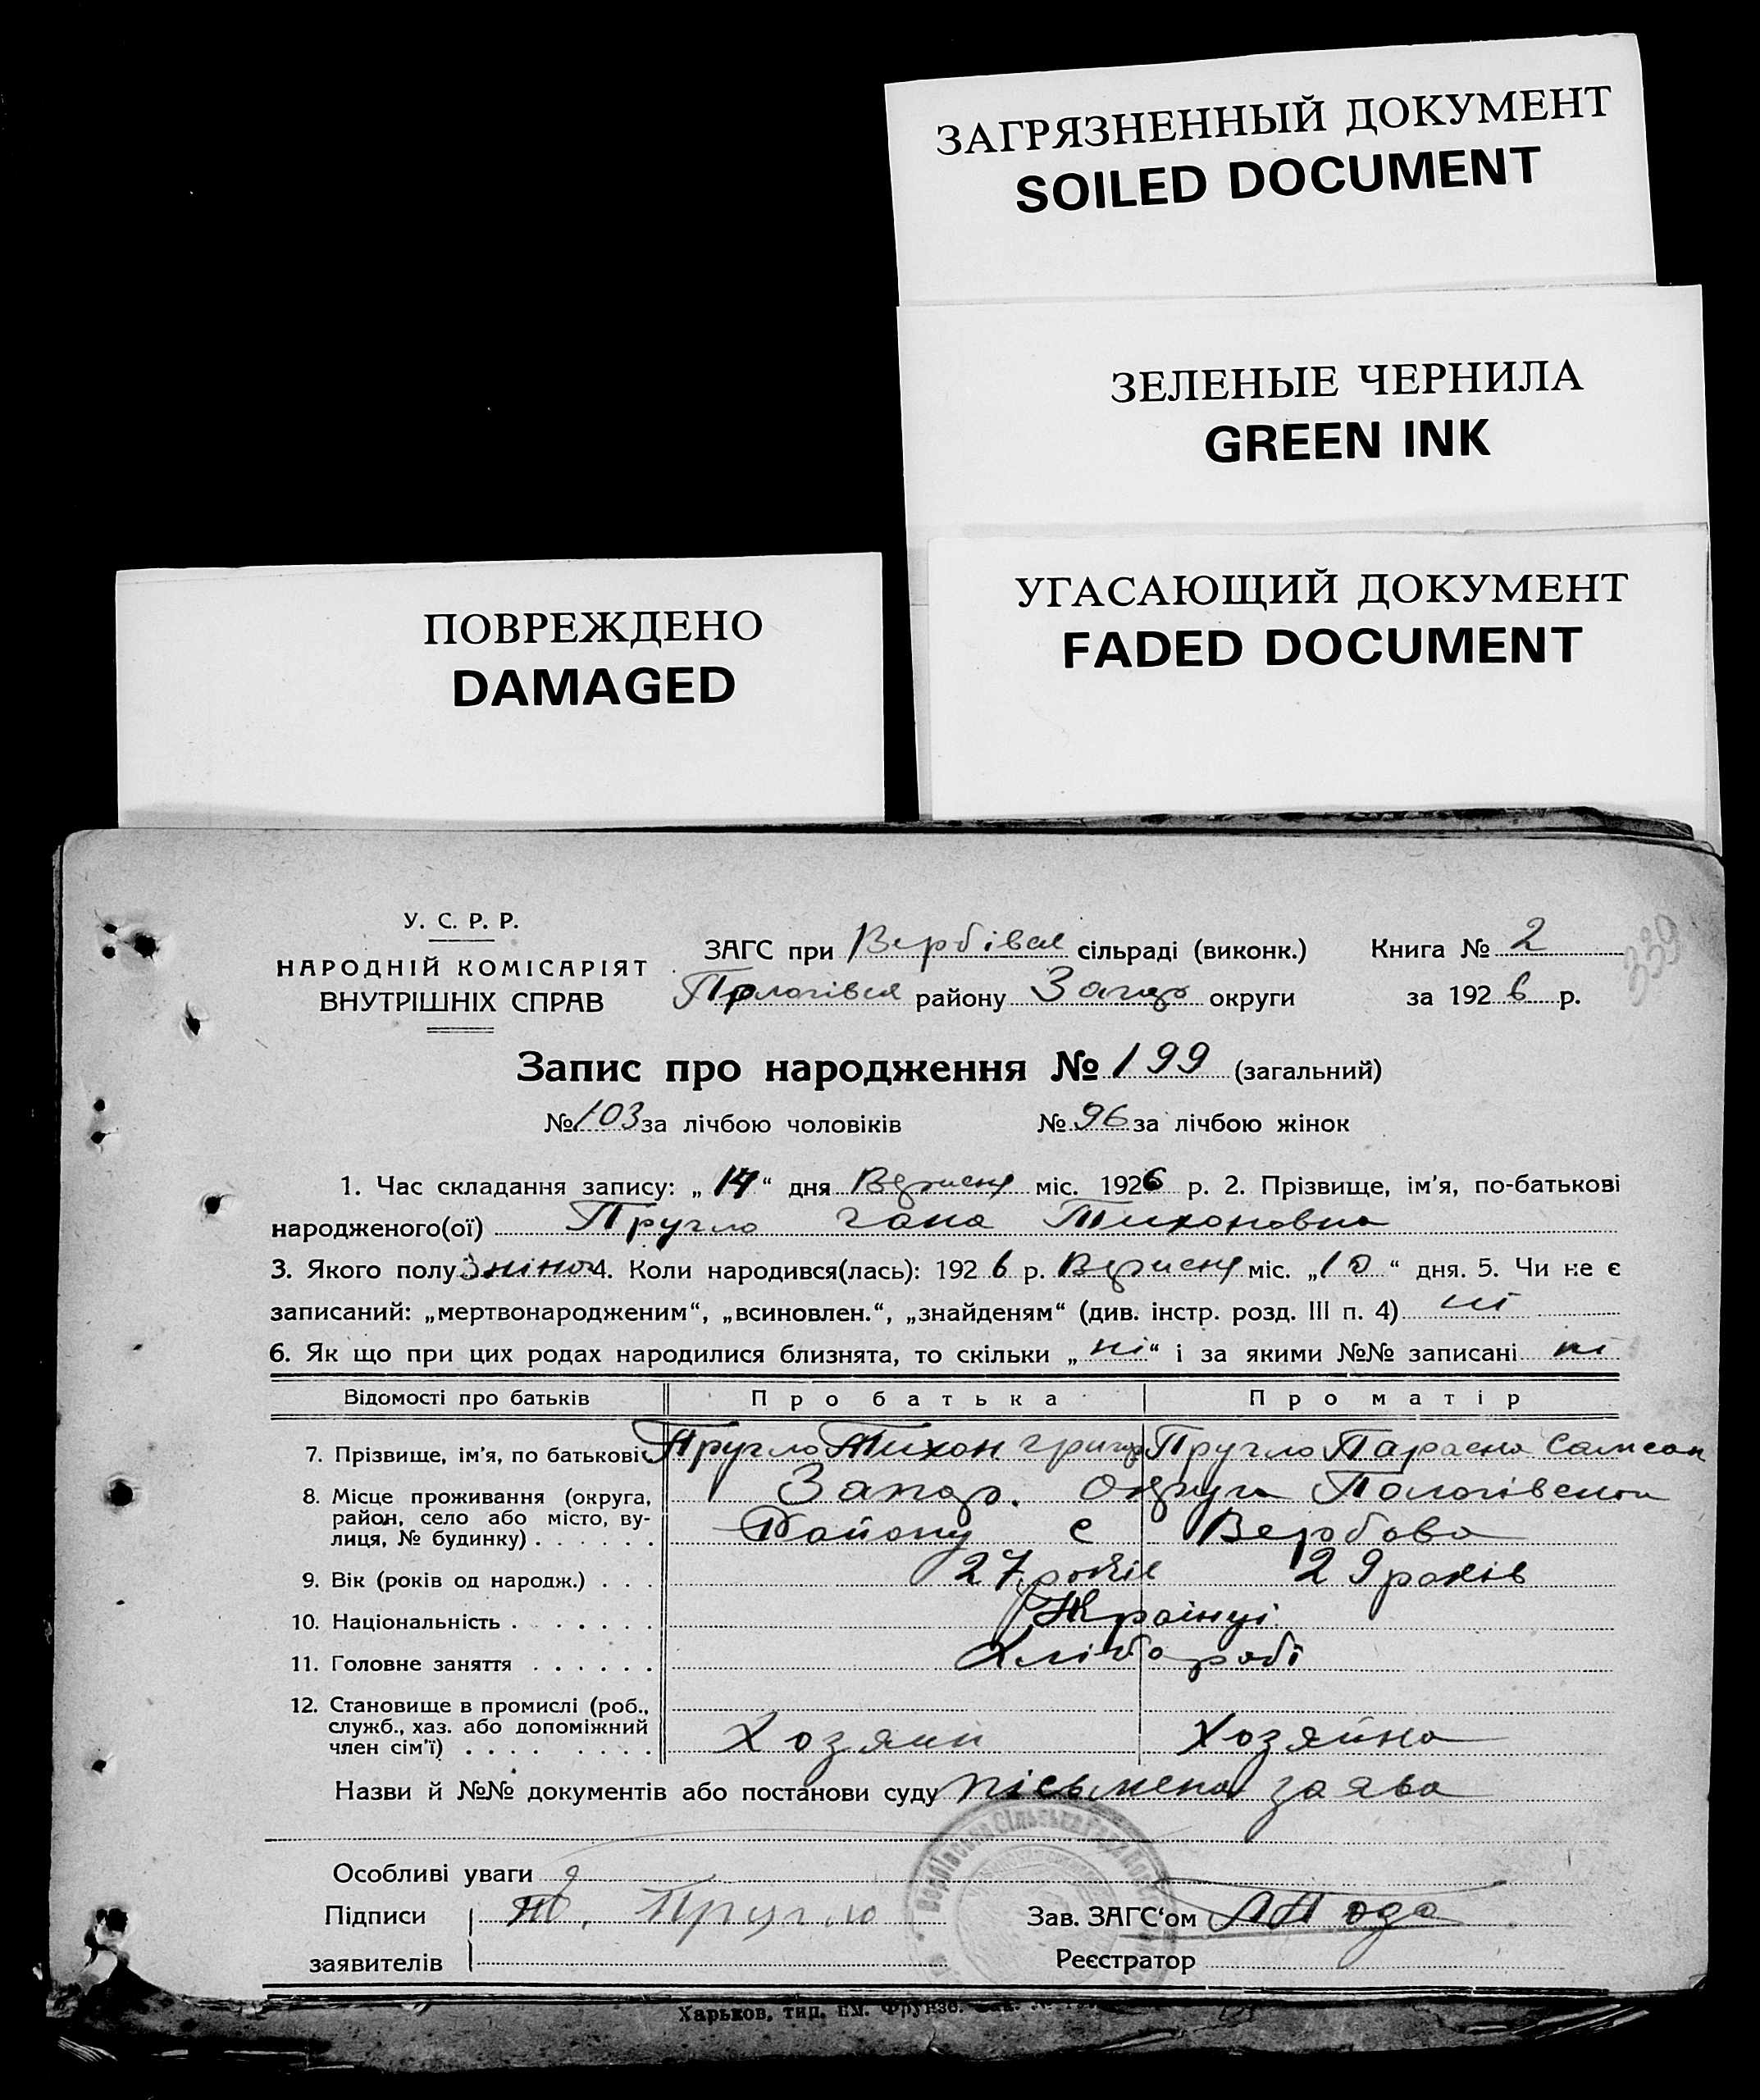 ЗАГРЯЗНЕННЫЙ ДОКУМЕНТ
SOILED DOCUMENT
ЗЕЛЕНЫЕ ЧЕРНИЛА
GREEN INK
УГАСАЮЩИЙ ДОКУМЕНТ
FADED DOCUMENT
ПОВРЕЖДЕНО
DAMAGED
У. С. Р. Р.
НАРОДНІЙ КОМІСАРІЯТ
ВНУТРІШНІХ СПРАВ
ЗАГС при Вербівск сільраді (виконк.)
Пологівск району Запор округи
Книга № 2
за 1926 р.
339
Запис про народження № 199 (загальний)
№ 103 за лічбою чоловіків № 96 за лічбою жінок
1. Час складання запису: „14“ дня Вересня міс. 1926 р. 2. Прізвище, ім'я, по-батькові
народженого(ої) Пругло Гана Тихоновна
3. Якого полу 4. Коли народився(лась): 1926 р. Вересня міс. „10“ дня. 5. Чи не є
записаний: „мертвонародженим“, „всиновлен.“, „знайденям“ (див. інстр. розд. III п. 4) ні
6. Як що при цих родах народилися близнята, то скільки „ні“ і за якими №№ записані ні
Відомості про батьків Про батька Про матір
7. Прізвище, ім'я, по батькові Пругло Тихон Григор Пругло Параска Самсон
8. Місце проживання (округа, Запор. Округи Пологівского
район, село або місто, ву- Району с Вербово
лиця, № будинку)
9. Вік (років од народж.) 27 років 29 років
10. Національність Українці
11. Головне заняття Хлібороби
12. Становище в промислі (роб.,
служб., хаз. або допоміжний
член сім'ї) Хозяин Хозяйка
Назви й №№ документів або постанови суду письмена заява
Особливі уваги
Підписи Т. Пругло Зав. ЗАГС'ом
заявителів Реєстратор
Харьков, тип. им. Фрунзе.